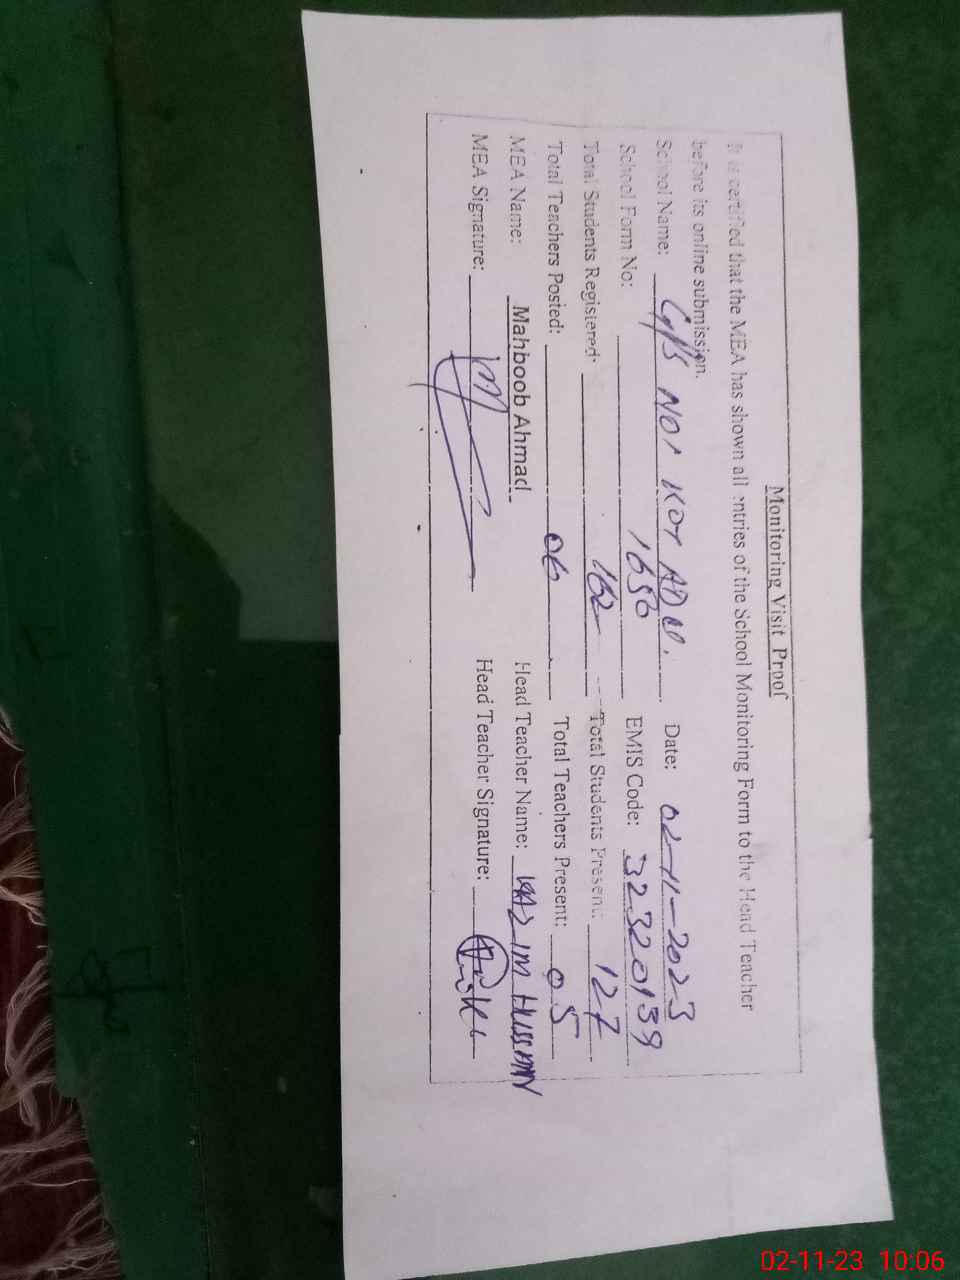 Monitoring Visit Proof
It is certified that the MEA has shown all entries of the School Monitoring Form to the Head Teacher
before its online submission.
School Name: NO1 KOT ADU. Date: 02-11-2023
School Form No: 1650 EMIS Code: 32320139
Total Students Registered: 162 Total Students Present: 127
Total Teachers Posted: 06 Total Teachers Present: 05
MEA Name: Mahboob Ahmad Head Teacher Name: KAZIM HUSSAIN
MEA Signature: Head Teacher Signature:
02-11-23 10:06